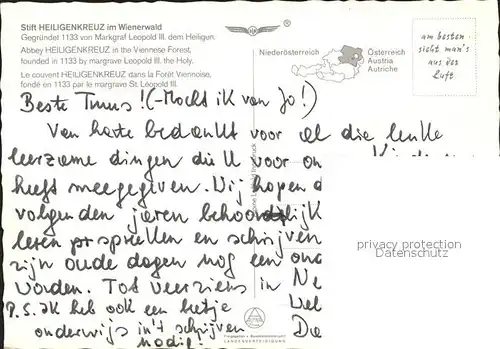 Stift HEILIGENKREUZ im Wienerwald
Gegründet 1133 von Markgraf Leopold III. dem Heiligen.
Abbey HEILIGENKREUZ in the Viennese Forest,
founded in 1133 by margrave Leopold III. the Holy.
Le couvent HEILIGENKREUZ dans la Forêt Viennoise,
fondé en 1133 par le margrave St. Léopold III.
Niederösterreich
Österreich
Austria
Autriche
am besten
sieht man's
aus der
Luft
Beste Tinus! (-Mocht ik van Jo!)
Van harte bedankt voor al die leuke
leerzame dingen die U voor on
heeft meegegeven. Wij hopen d
volgenden jaren behoorlijk
leren spreken en schrijven
zijn oude dagen nog een
worden. Tot weerziens in Ne
P.S. Ik heb ook een beetje
onderwijs in't schrijven
nodig!
privacy protection
Datenschutz
LANDESVERTEIDIGUNG